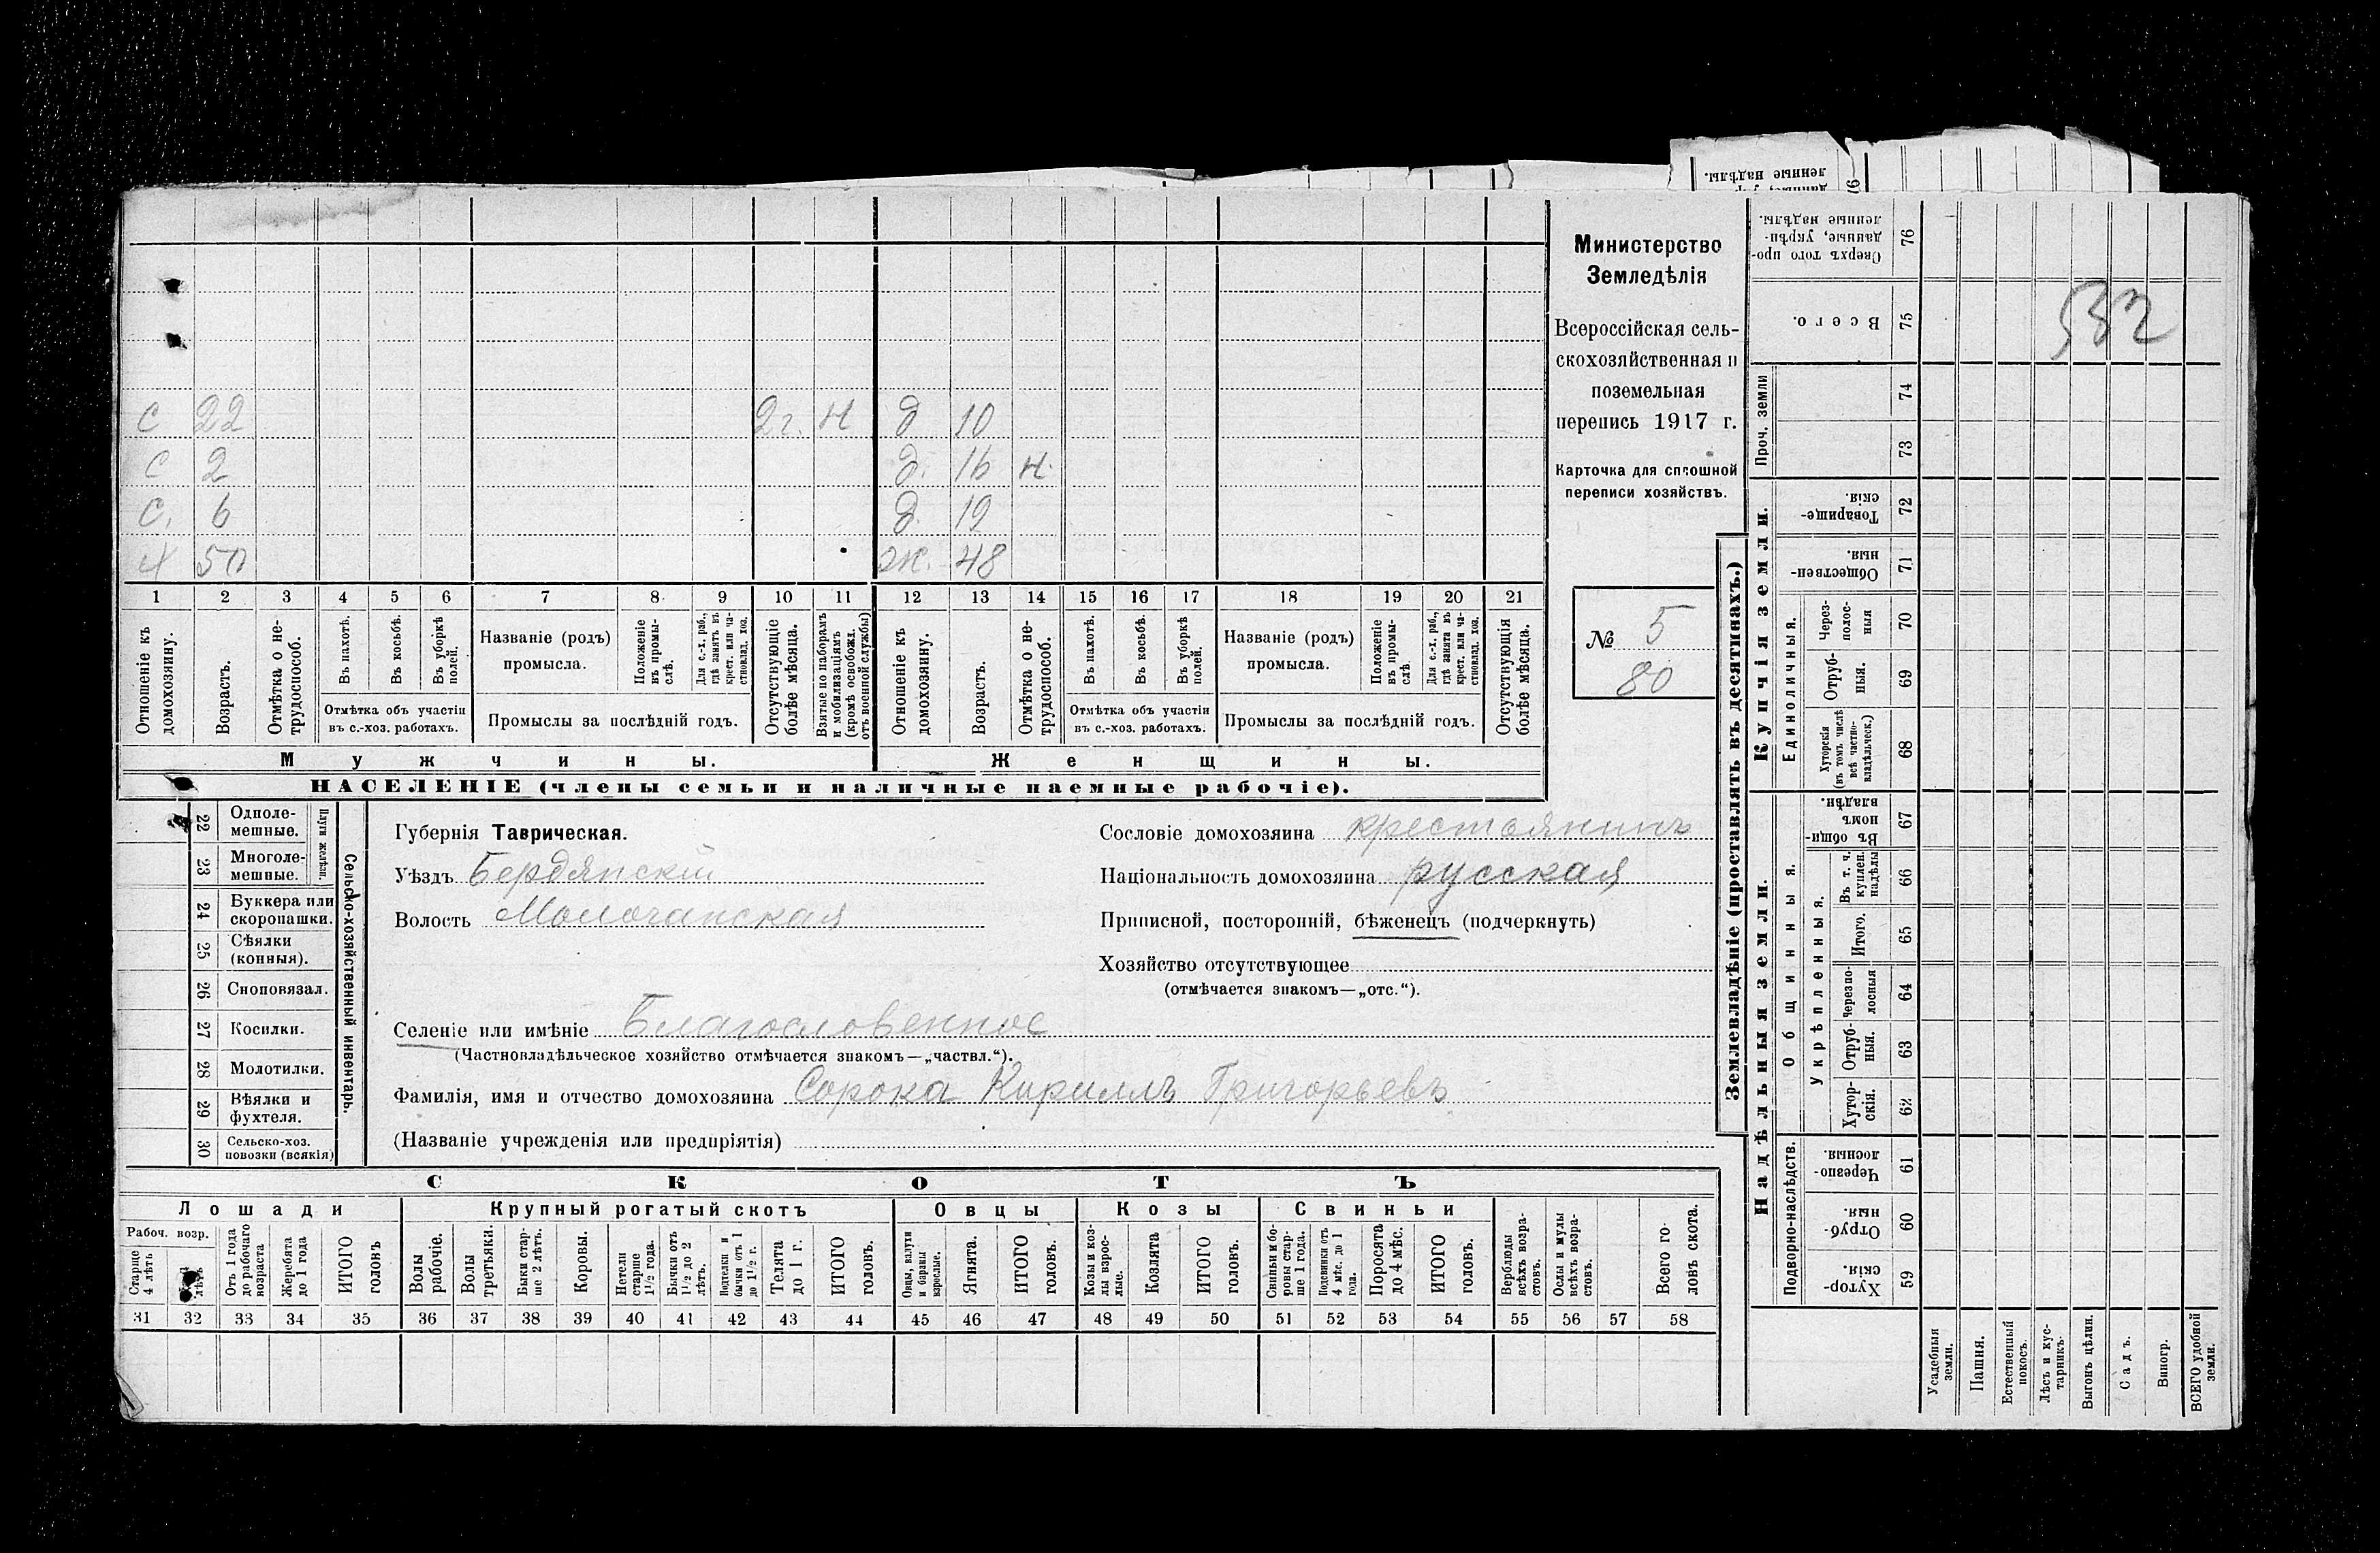 ленные надѣлы.
С 22 2 г. Н д 10
С 2 д. 16 н.
С. 6 д. 19
Х 50 ж. 48
1 2 3 4 5 6 7 8 9 10 11 12 13 14 15 16 17 18 19 20 21
Отношеніе къ домохозяину.
Возрастъ.
Отмѣтка о не-трудоспособ.
Въ пахотѣ.
Въ косьбѣ.
Въ уборкѣ полей.
Отмѣтка объ участіи
въ с.-хоз. работахъ.
Названіе (родъ)
промысла.
Положеніе въ промы-слѣ.
Для с.-х. раб., гдѣ занятъ въ крест. или ча-стновлад. хоз.
Промыслы за послѣдній годъ.
Отсутствующіе болѣе мѣсяца.
Взятые по наборамъ и мобилизаціямъ (кромѣ освобожд. отъ военной службы)
Отношеніе къ домохозяину.
Возрастъ.
Отмѣтка о не-трудоспособ.
Въ пахотѣ.
Въ косьбѣ.
Въ уборкѣ полей.
Отмѣтка объ участіи
въ с.-хоз. работахъ.
Названіе (родъ)
промысла.
Положеніе въ промы-слѣ.
Для с.-х. раб., гдѣ занята въ крест. или ча-стновлад. хоз.
Промыслы за послѣдній годъ.
Отсутствующія болѣе мѣсяца.
Мужчины. Женщины.
НАСЕЛЕНІЕ (члены семьи и наличные наемные рабочіе).
Министерство
Земледѣлія
Всероссійская сель-
скохозяйственная и
поземельная
перепись 1917 г.
Карточка для сплошной
переписи хозяйствъ.
№ 5
80
22 Одноле-мешные.
23 Многоле-мешные.
Плуги желѣзн.
24 Буккера или скоропашки.
25 Сѣялки (конныя).
26 Сноповязал.
27 Косилки.
28 Молотилки.
29 Вѣялки и фухтеля.
30 Сельско-хоз. повозки (всякія)
Сельско-хозяйственный инвентарь.
Губернія Таврическая.
Уѣздъ Бердянскій
Волость Молочанская
Сословіе домохозяина крестьянинъ
Національность домохозяина русская
Приписной, посторонній, бѣженецъ (подчеркнуть)
Хозяйство отсутствующее
(отмѣчается знакомъ—„отс.“).
Селеніе или имѣніе Благословенное
(Частновладѣльческое хозяйство отмѣчается знакомъ—„частвл.“).
Фамилія, имя и отчество домохозяина Сорока Кириллъ Григорьевъ
(Названіе учрежденія или предпріятія)
СКОТЪ
Лошади Крупный рогатый скотъ Овцы Козы Свиньи
Рабоч. возр.
Старше 4 лѣтъ
лѣтъ
Отъ 1 года до рабочаго возраста
Жеребята до 1 года
ИТОГО головъ
Волы рабочіе.
Волы третьяки.
Быки стар-ше 2 лѣтъ.
Коровы.
Нетели старше 1½ года.
Бычки отъ 1½ до 2 лѣтъ.
Подтелки и бычки отъ 1 до 1½ г.
Телята до 1 г.
ИТОГО головъ.
Овцы, валухи и бараны взрослые.
Ягнята.
ИТОГО головъ.
Козы и коз-лы взрос-лые.
Козлята
ИТОГО головъ.
Свиньи и бо-ровы стар-ше 1 года.
Подсвинки отъ 4 мѣс. до 1 года.
Поросята до 4 мѣс.
ИТОГО головъ.
Верблюды всѣхъ возра-стовъ.
Ослы и мулы всѣхъ возра-стовъ.
Всего го-ловъ скота.
31 32 33 34 35 36 37 38 39 40 41 42 43 44 45 46 47 48 49 50 51 52 53 54 55 56 57 58
Землевладѣніе (проставлять въ десятинахъ.)
Купчія земли.
Надѣльныя земли.
Сверхъ того про-данные, укрѣп-ленные надѣлы. 76
Всего. 75
Проч. земли 74
73
Товарище-скія. 72
Обществен-ныя. 71
Единоличныя.
Через-полос-ныя 70
Отруб-ныя. 69
Хуторскія (въ томъ числѣ всѣ частно-владѣльческ.) 68
Общинныя.
Въ общи-номъ владѣн. 67
Укрѣпленныя.
Въ т. ч. куплен. надѣлы 66
Итого. 65
Черезпо-лосныя 64
Отруб-ныя. 63
Хутор-скія. 62
Подворно-наслѣдств.
Черезпо-лосныя. 61
Отруб-ныя. 60
Хутор-скія. 59
Усадебныя земли.
Пашня.
Естественный покосъ.
Лѣсъ и кус-тарникъ.
Выгонъ цѣлин.
Садъ.
Виногр.
ВСЕГО удобной земли.
532